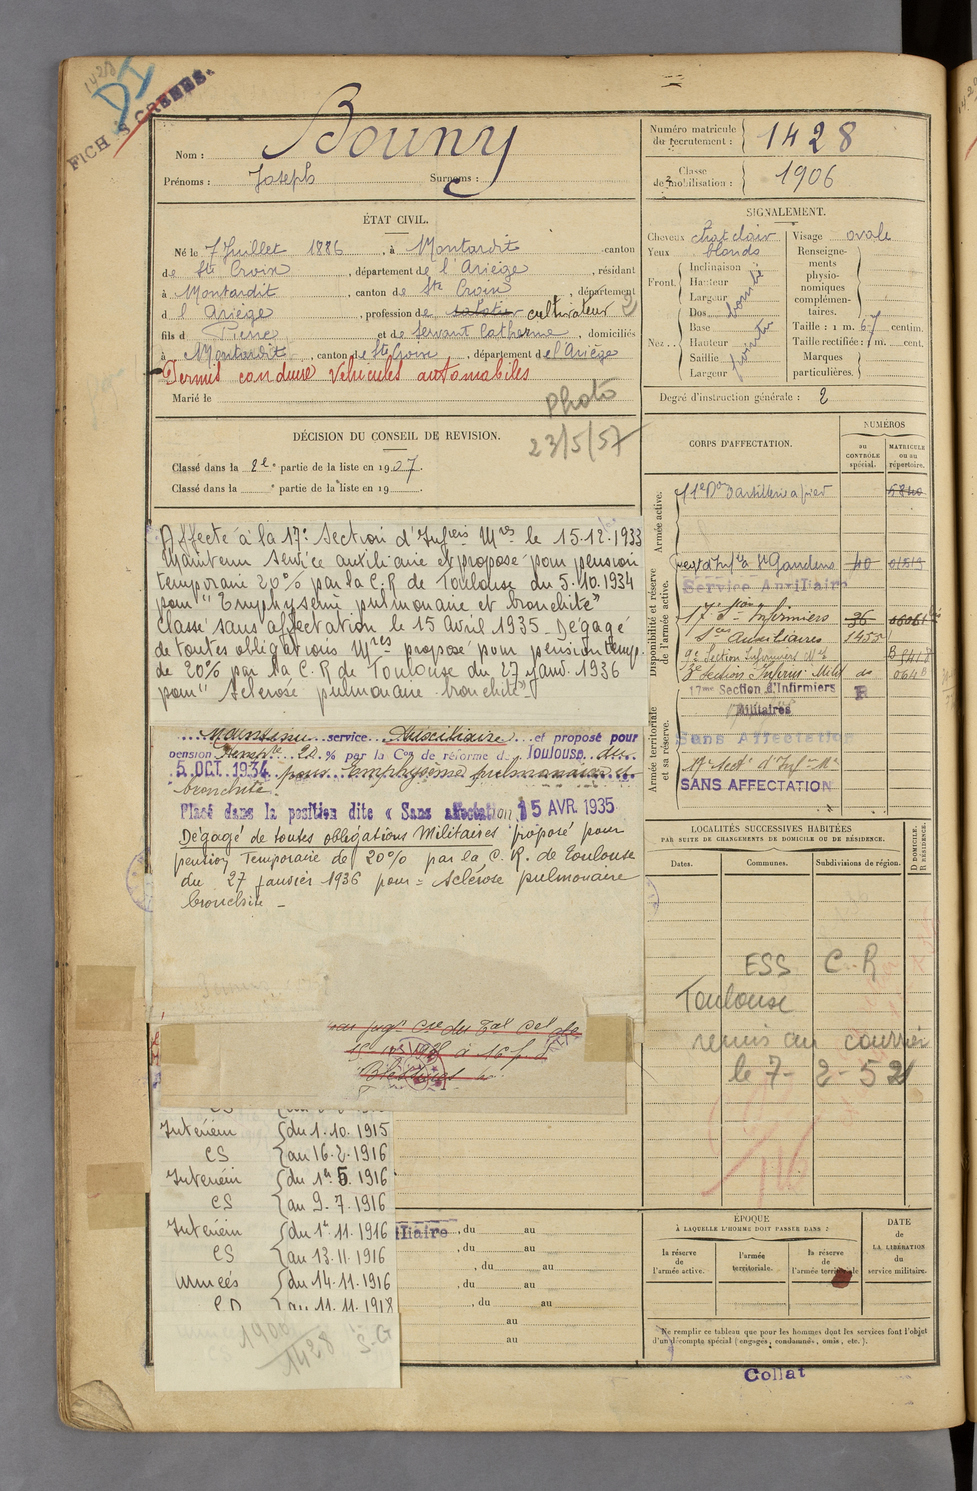 1428
D1
FICHES CREEES.
Nom : Bouny
Prénoms : Joseph Surnoms :
Numéro matricule du recrutement : 1428
Classe de mobilisation : 1906
ÉTAT CIVIL.
Né le 7 Juillet 1886, à Montardit canton
de Ste Croix, département de l'Ariège, résidant
à Montardit, canton de Ste Croix, département
d l'Ariège, profession de cultivateur 2
fils d Pierre et de Servant Catherine, domiciliés
à Montardit, canton de Ste Croix, département de l'Ariège
Permis conduire Véhicules automobiles
Marié le
Photo
23/5/57
SIGNALEMENT.
Cheveux chat clair
Yeux blonds
Front Inclinaison
Hauteur
Largeur
bombé
Nez Dos
Base
Hauteur
Saillie
Largeur
Visage ovale
Renseignements physionomiques complémentaires.
Taille : 1 m. 67 centim.
Taille rectifiée : 1 m. cent.
Marques particulières.
Degré d'instruction générale : 2
DÉCISION DU CONSEIL DE REVISION.
Classé dans la 2e partie de la liste en 1907.
Classé dans la partie de la liste en 19
CORPS D'AFFECTATION.
NUMÉROS
au CONTRÔLE spécial.
MATRICULE ou au répertoire.
Armée active.
Disponibilité et réserve de l'armée active.
Armée territoriale et sa réserve.
d'artillerie à pied 5840
regt d'Infie à St Gaudens 40
Service Auxiliaire
17e Son Infirmiers 36
Sces Auxiliaires 1455
9e Section Infirmiers Mres
Section Infirm. Milit do
17me Section d'Infirmiers R
Militaires
Sans Affectation
17e Sect d'Infirs Mres
SANS AFFECTATION
Affecté à la 17e Section d'Infiers Mres le 15.12.1933
Maintenu service auxiliaire et proposé pour pension
temporaire 20% par la C.R de Toulouse du 5.10.1934
pour "Emphysème pulmonaire et bronchite"
Classé sans affectation le 15 Avril 1935 - Dégagé
de toutes obligations Mres proposé pour pension temp.
de 20% par la C.R de Toulouse du 27 janv. 1936
pour "Sclérose pulmonaire bronchite"
Maintenu service Auxiliaire et proposé pour
pension temple 20 % par la Con de réforme de Toulouse du
5 OCT. 1934 pour emphysème pulmonaire et
bronchite.
Placé dans la position dite « Sans affectation 15 AVR. 1935
Dégagé de toutes obligations Militaires proposé pour
pension Temporaire de 20% par la C.R. de Toulouse
du 27 janvier 1936 pour = Sclérose pulmonaire
bronchite -
LOCALITÉS SUCCESSIVES HABITÉES
PAR SUITE DE CHANGEMENTS DE DOMICILE OU DE RÉSIDENCE.
Dates. Communes. Subdivisions de région. D DOMICILE. R RÉSIDENCE.
ESS C.R
Toulouse
remis au courrier
le 7-2-52
Intérieur du 1.10.1915
CS au 16.2.1916
Intérieur du 1er 5.1916
CS au 9.7.1916
Intérieur du 1r.11.1916
CS au 13.11.1916
Armées du 14.11.1916
CD au 11.11.1918
iliaire, du au
, du au
, du au
, du au
, du au
au
au
1900
1428
S.G
ÉPOQUE
À LAQUELLE L'HOMME DOIT PASSER DANS :
la réserve de l'armée active.
l'armée territoriale.
la réserve de l'armée territoriale
DATE de LA LIBÉRATION du service militaire.
Ne remplir ce tableau que pour les hommes dont les services font l'objet
d'un décompte spécial (engagés, condamnés, omis, etc.).
Collat